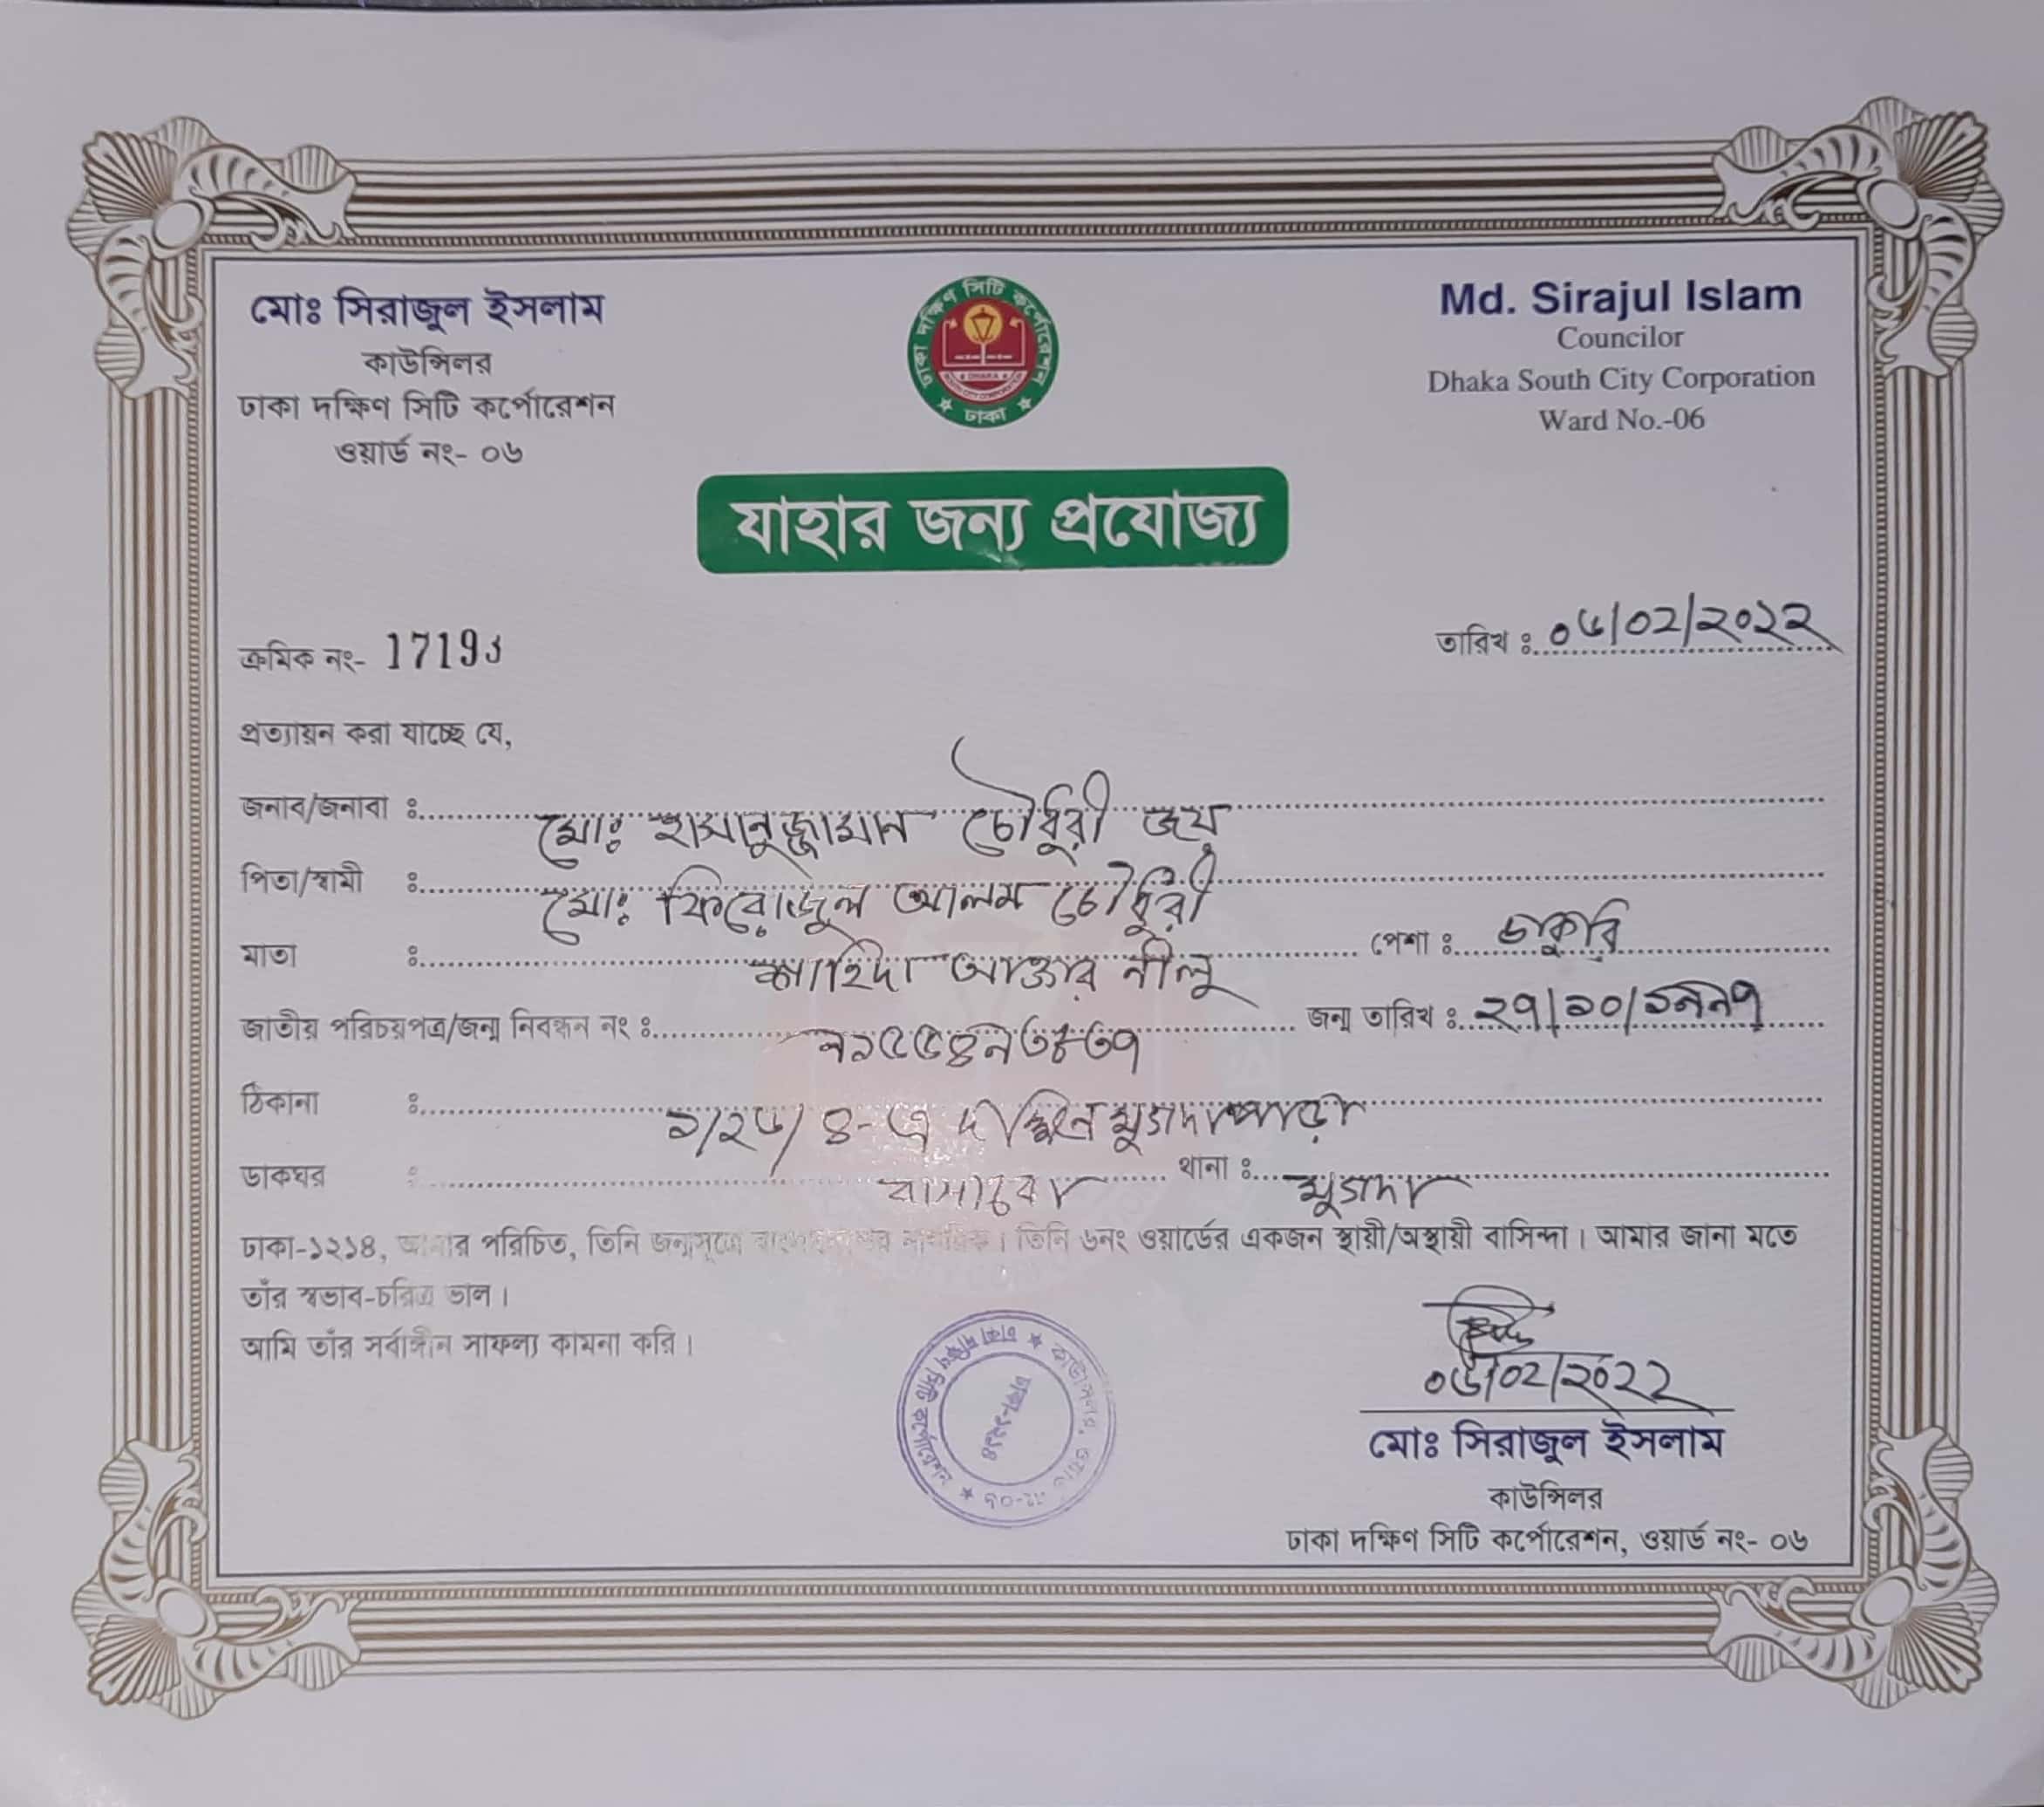 মোঃ সিরাজুল ইসলাম
কাউন্সিলর
ঢাকা দক্ষিণ সিটি কর্পোরেশন
ওয়ার্ড নং- ০৬
ঢাকা দক্ষিণ সিটি কর্পোরেশন
DHAKA
SOUTH CITY CORPORATION
ঢাকা
Md. Sirajul Islam
Councilor
Dhaka South City Corporation
Ward No.-06
যাহার জন্য প্রযোজ্য
ক্রমিক নং- 17193
তারিখ ঃ ০৬/০২/২০২২
প্রত্যায়ন করা যাচ্ছে যে,
জনাব/জনাবা ঃ মোঃ হাসানুজ্জামান চৌধুরী জয়
পিতা/স্বামী ঃ মোঃ ফিরোজুল আলম চৌধুরী
মাতা ঃ আক্তার নীলু পেশা ঃ চাকুরি
জাতীয় পরিচয়পত্র/জন্ম নিবন্ধন নং ঃ জন্ম তারিখ ঃ ২৭/১০/১৯৯৭
ঠিকানা ঃ ১/২৬/৪-এ দক্ষিন মুগদাপাড়া
ডাকঘর ঃ বাসাবো থানা ঃ মুগদা
ঢাকা-১২১৪, আমার পরিচিত, তিনি জন্মসূত্রে বাংলাদেশের নাগরিক। তিনি ৬নং ওয়ার্ডের একজন স্থায়ী/অস্থায়ী বাসিন্দা। আমার জানা মতে
তাঁর স্বভাব-চরিত্র ভাল।
আমি তাঁর সর্বাঙ্গীন সাফল্য কামনা করি।
কাউন্সিলর, ওয়ার্ড নং-০৬ ★ ঢাকা দক্ষিণ সিটি কর্পোরেশন ★
ঢাকা-১২১৪
০৬/০২/২০২২
মোঃ সিরাজুল ইসলাম
কাউন্সিলর
ঢাকা দক্ষিণ সিটি কর্পোরেশন, ওয়ার্ড নং- ০৬